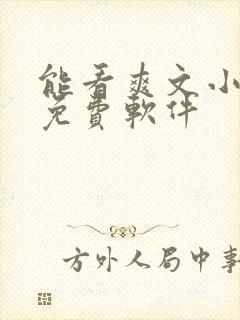 能看爽文小
免費軟件
方外人局中事